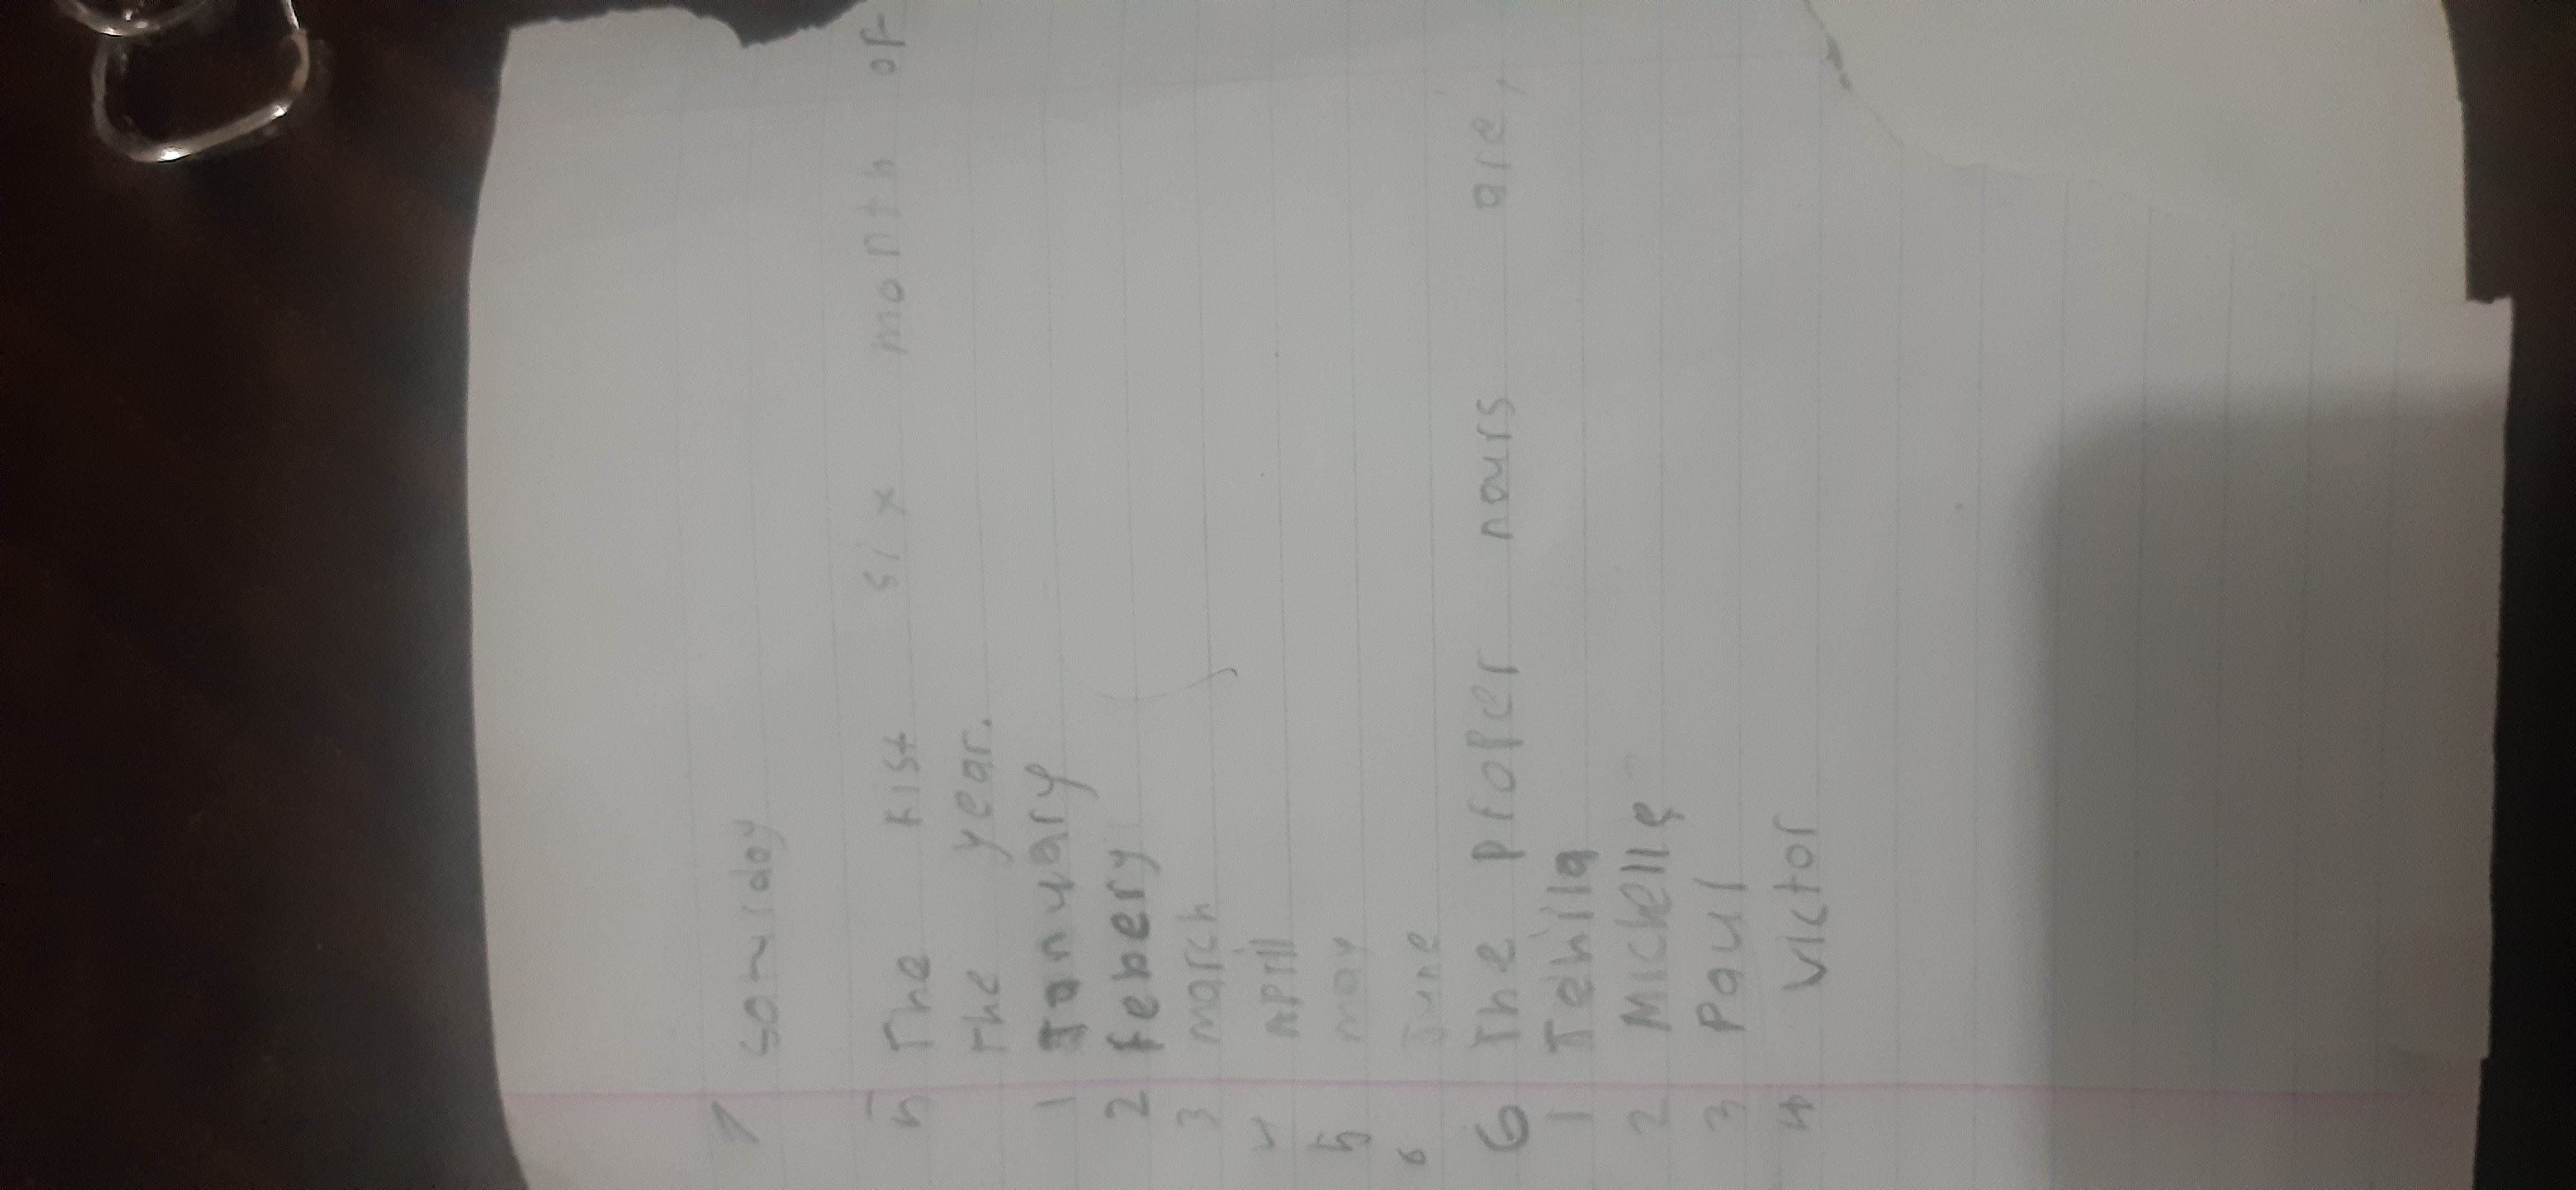 7 saturday
5 The fist six month of
the year.
1 January
2 febery
3 march
4 April
5 may
6 June
6 The proper nouns are,
1 Tehila
2 Michelle
3 Paul
4 Victor